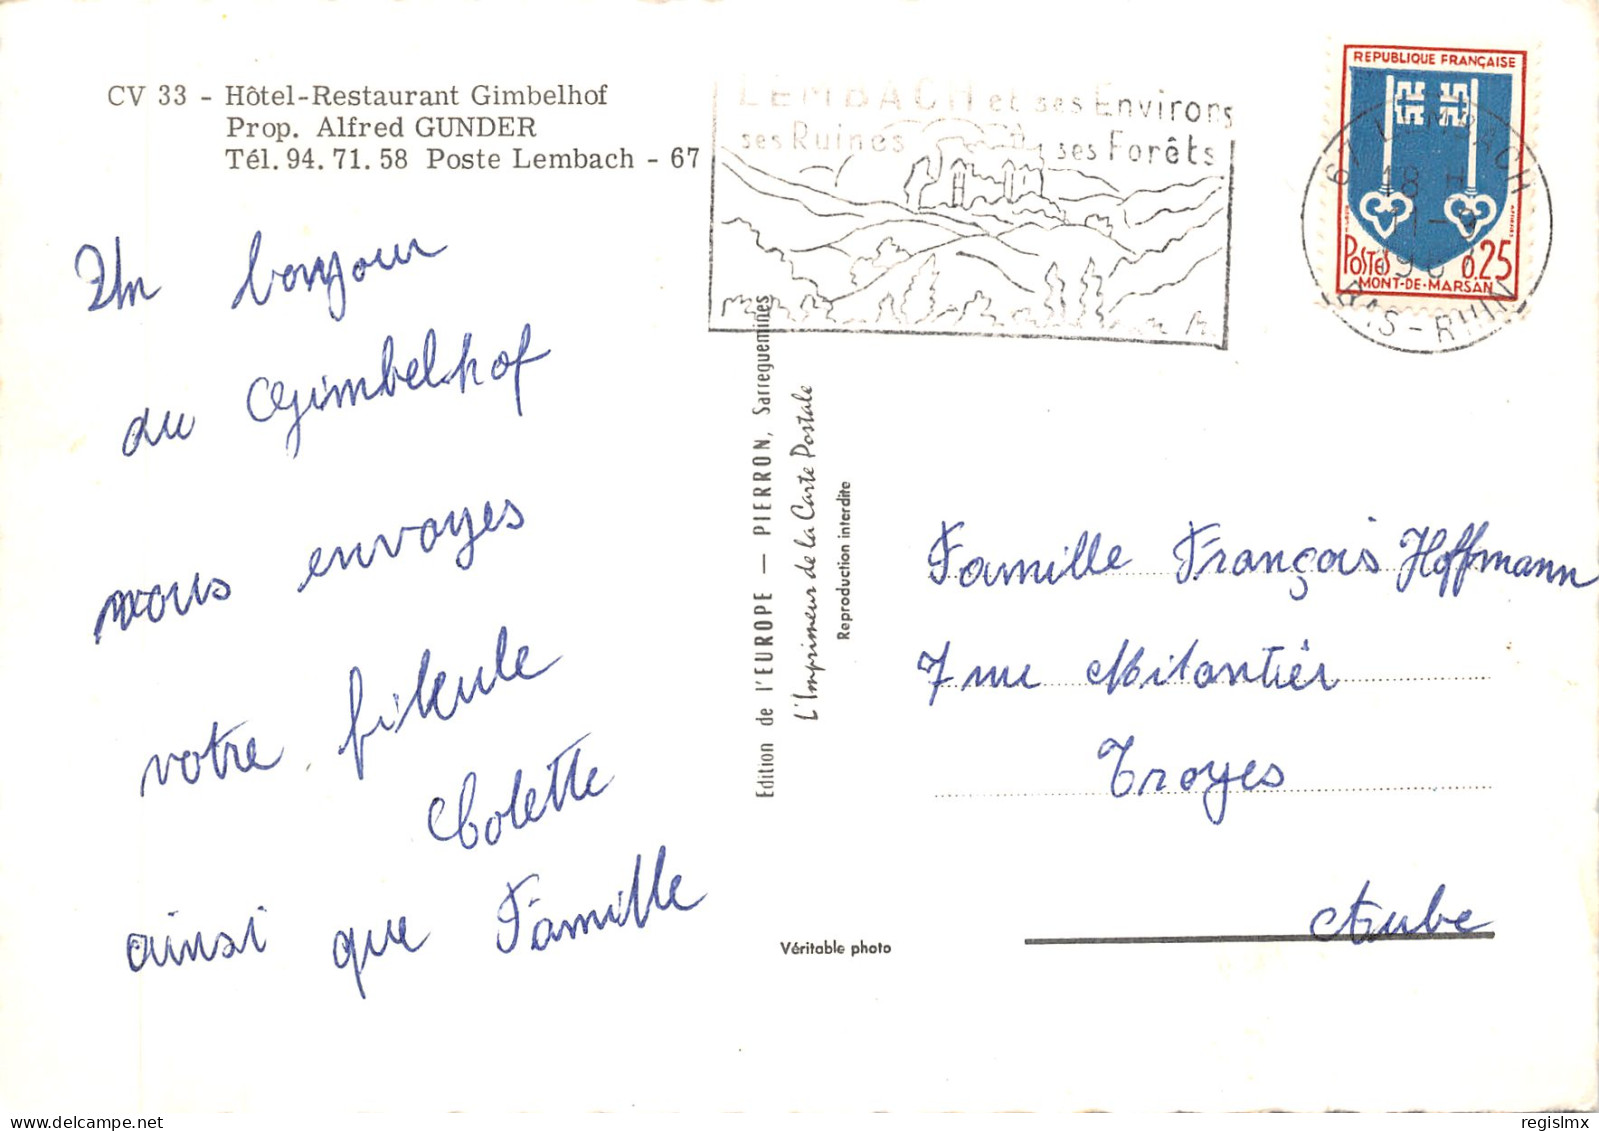 CV 33 - Hôtel-Restaurant Gimbelhof
Prop. Alfred GUNDER
Tél. 94. 71. 58 Poste Lembach - 67
Un bonjour
du Gimbelhof
vous envoyes
votre filleule
Colette
ainsi que Famille
LEMBACH et ses Environs
ses Ruines
ses Forêts
REPUBLIQUE FRANÇAISE
POSTES 0,25
MONT-DE-MARSAN
67 LEMBACH
18 H
31-8
BAS-RHIN
Edition de l'EUROPE — PIERRON, Sarreguemines
L'Imprimeur de la Carte Postale
Reproduction interdite
Famille François Hoffmann
7 rue Mitantier
Troyes
Aube
Véritable photo
www.delcampe.net
regislmx